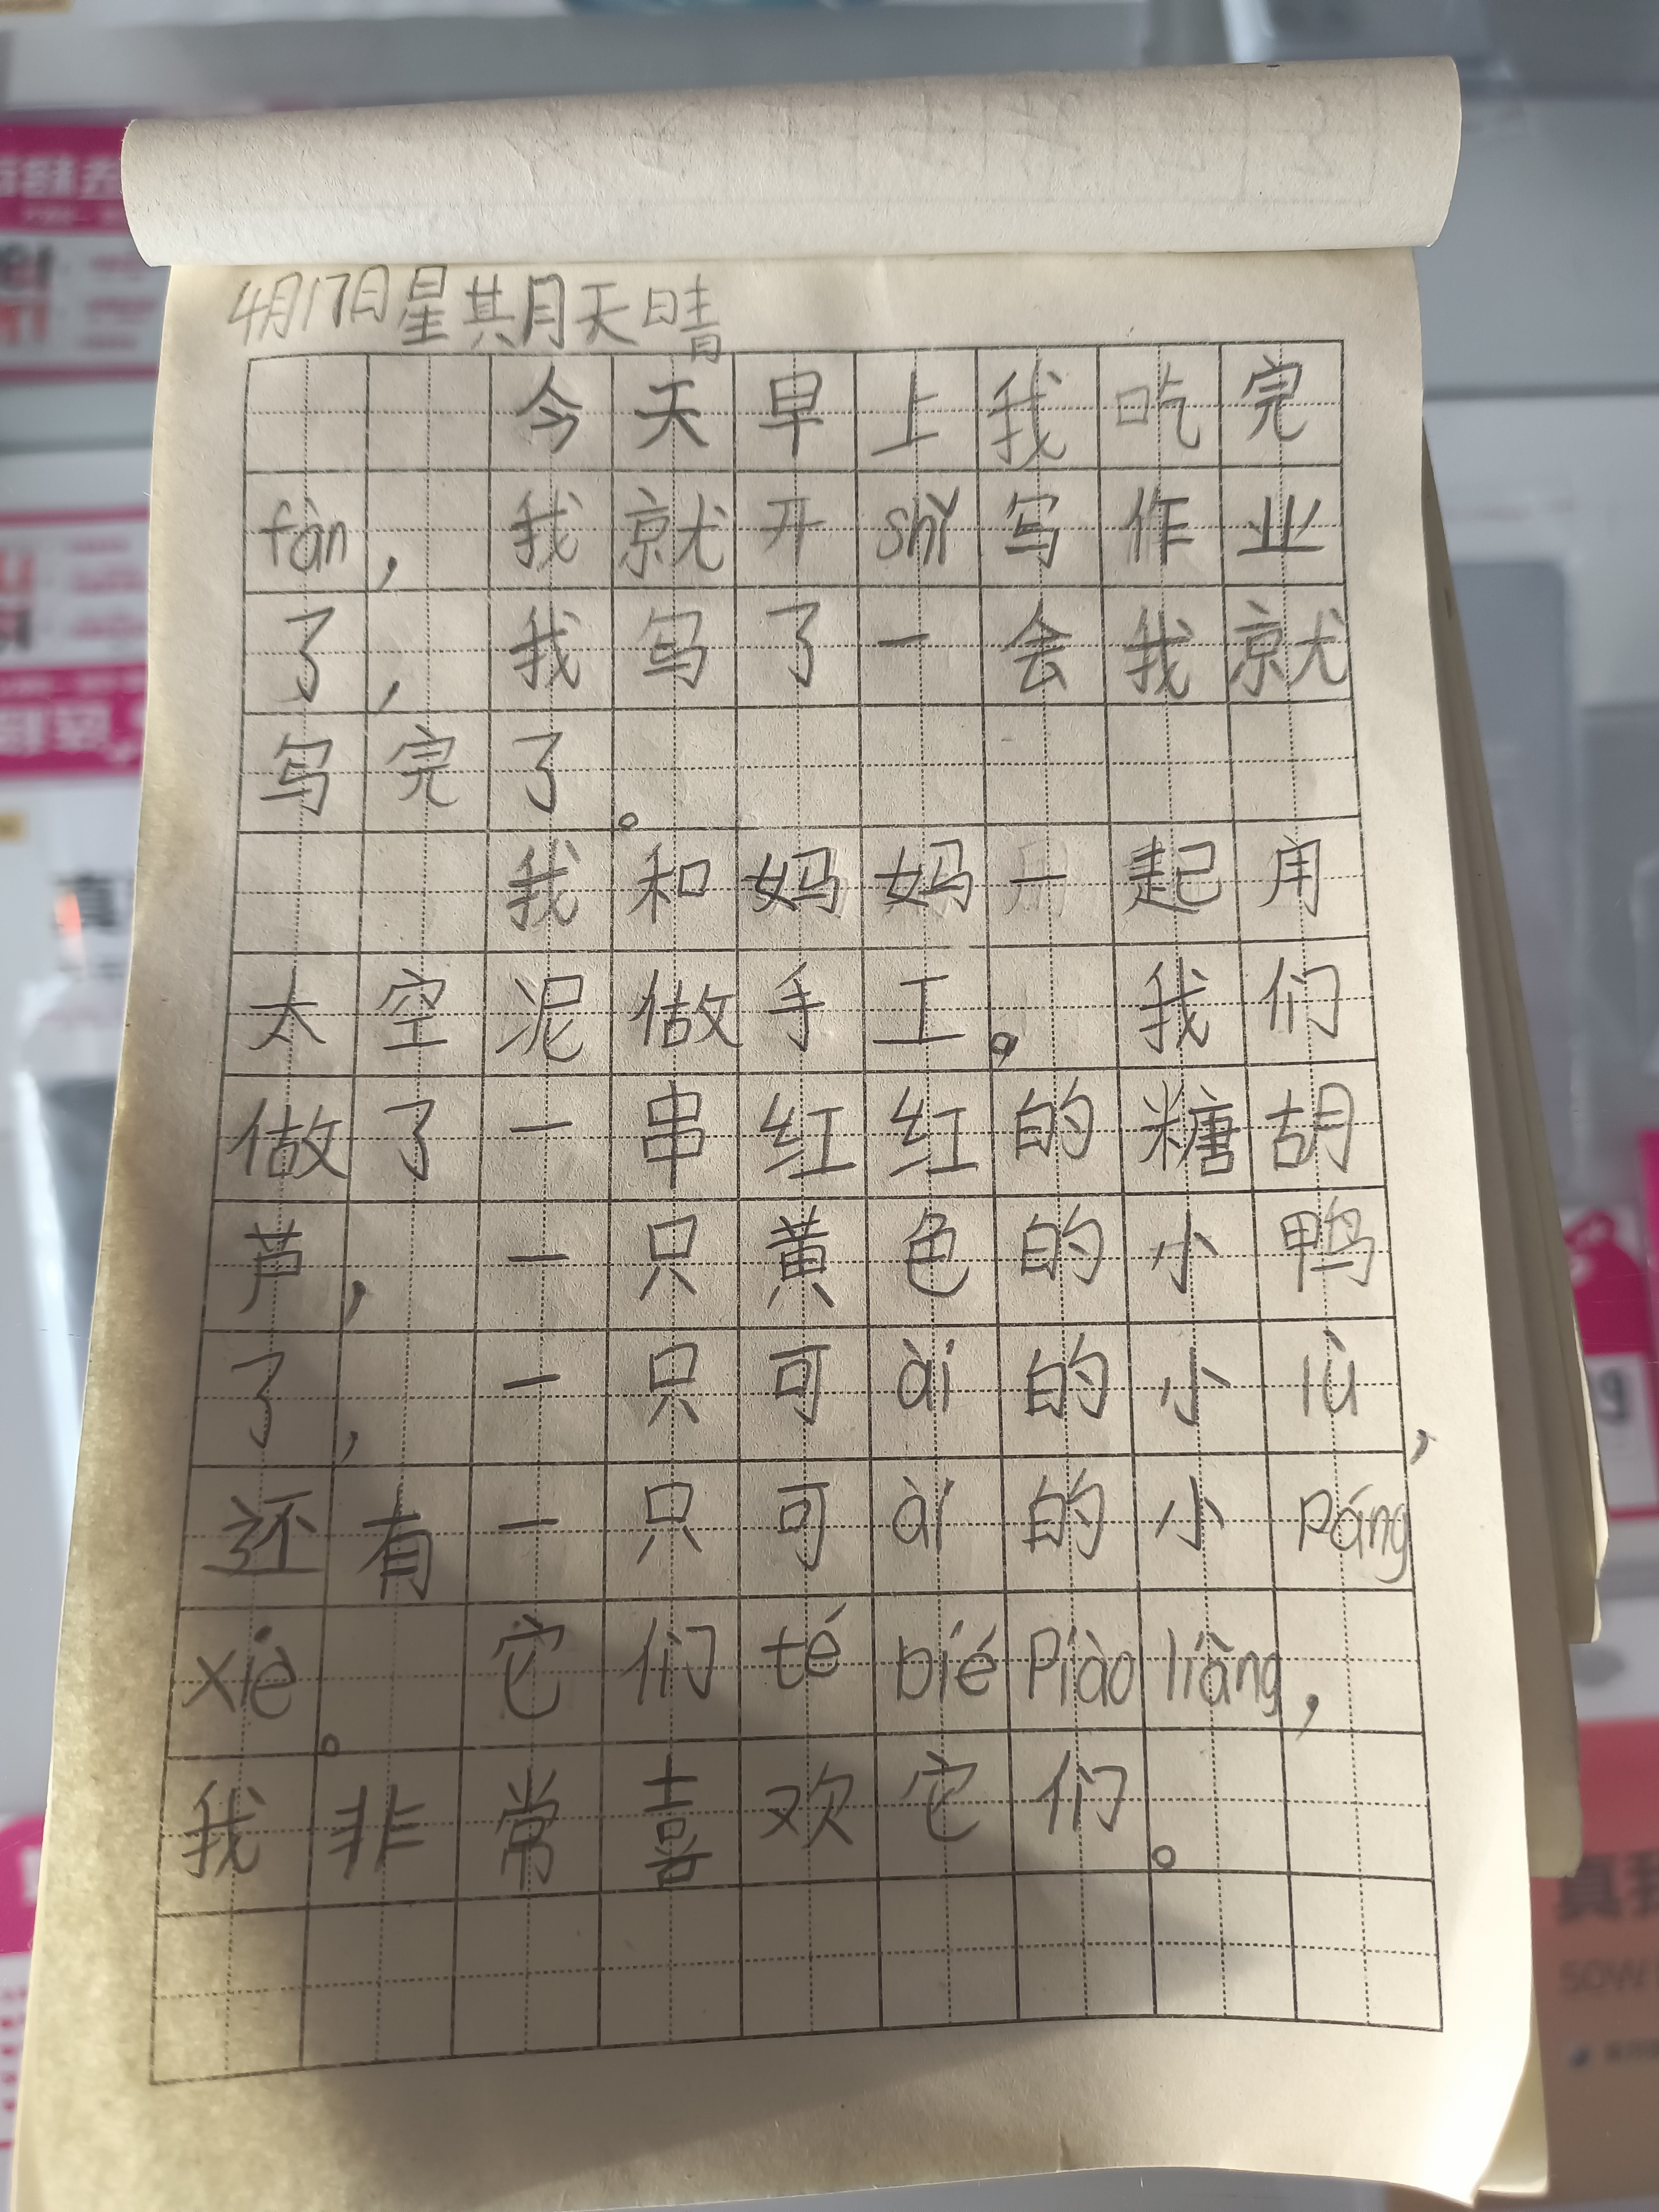 4月17日星期天晴
今天早上我吃完
fàn，我就开shǐ写作业
了，我写了一会我就
写完了。
我和妈妈一起用
太空泥做手工。我们
做了一串红红的糖胡
芦，一只黄色的小鸭
了，一只可ài的小lù，
还有一只可ài的小páng
xiè。它们tébiéPiàoliàng，
我非常喜欢它们。
50W